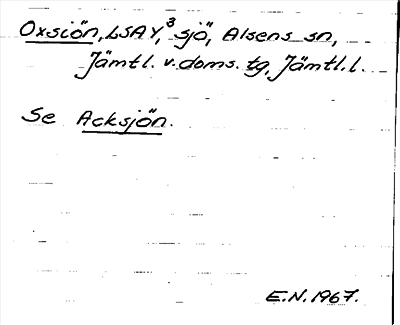 Oxsiön, LSAY,³ sjö, Alsens sn,
Jämtl. v. doms. tg, Jämtl.l.
Se Acksjön.
E.N. 1967.